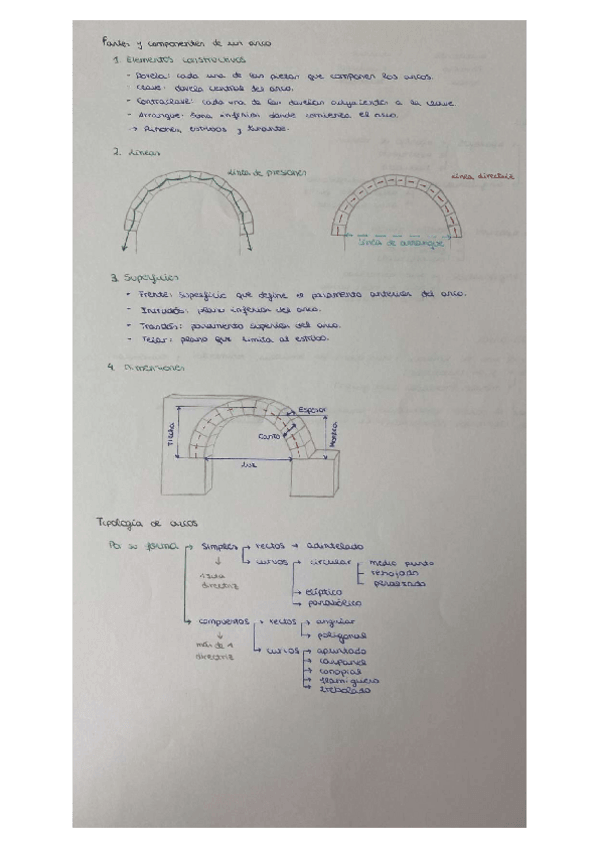 Partes y componentes de un arco
1. Elementos constructivos
- Dovela: cada una de las piezas que componen los arcos.
- Clave: dovela central del arco.
- Contraclave: cada una de las dovelas adyacentes a la clave
- Arranque: zona inferior donde comienza el arco.
→ Riñones, estribos y tirante.
2. Líneas
Línea de presiones
Línea directriz
Línea de arranque
3. Superficies
- Frente: superficie que define el paramento anterior del arco.
- Intradós: plano inferior del arco.
- Trasdós: paramento superior del arco.
- Telar: plano que limita al estribo.
4. Dimensiones
Flecha
Espesor
Canto
Luz
Montea
Tipología de arcos
Por su forma → simples → rectos → adintelado
→ curvos → circular medio punto
rebajado
peraltado
1 sola directriz
→ elíptico
→ parabólico
→ compuestos → rectos → angular
→ poligonal
más de 1 directriz
→ curvos → apuntado
→ carpanel
→ conopial
→ flamíguero
→ trebolado